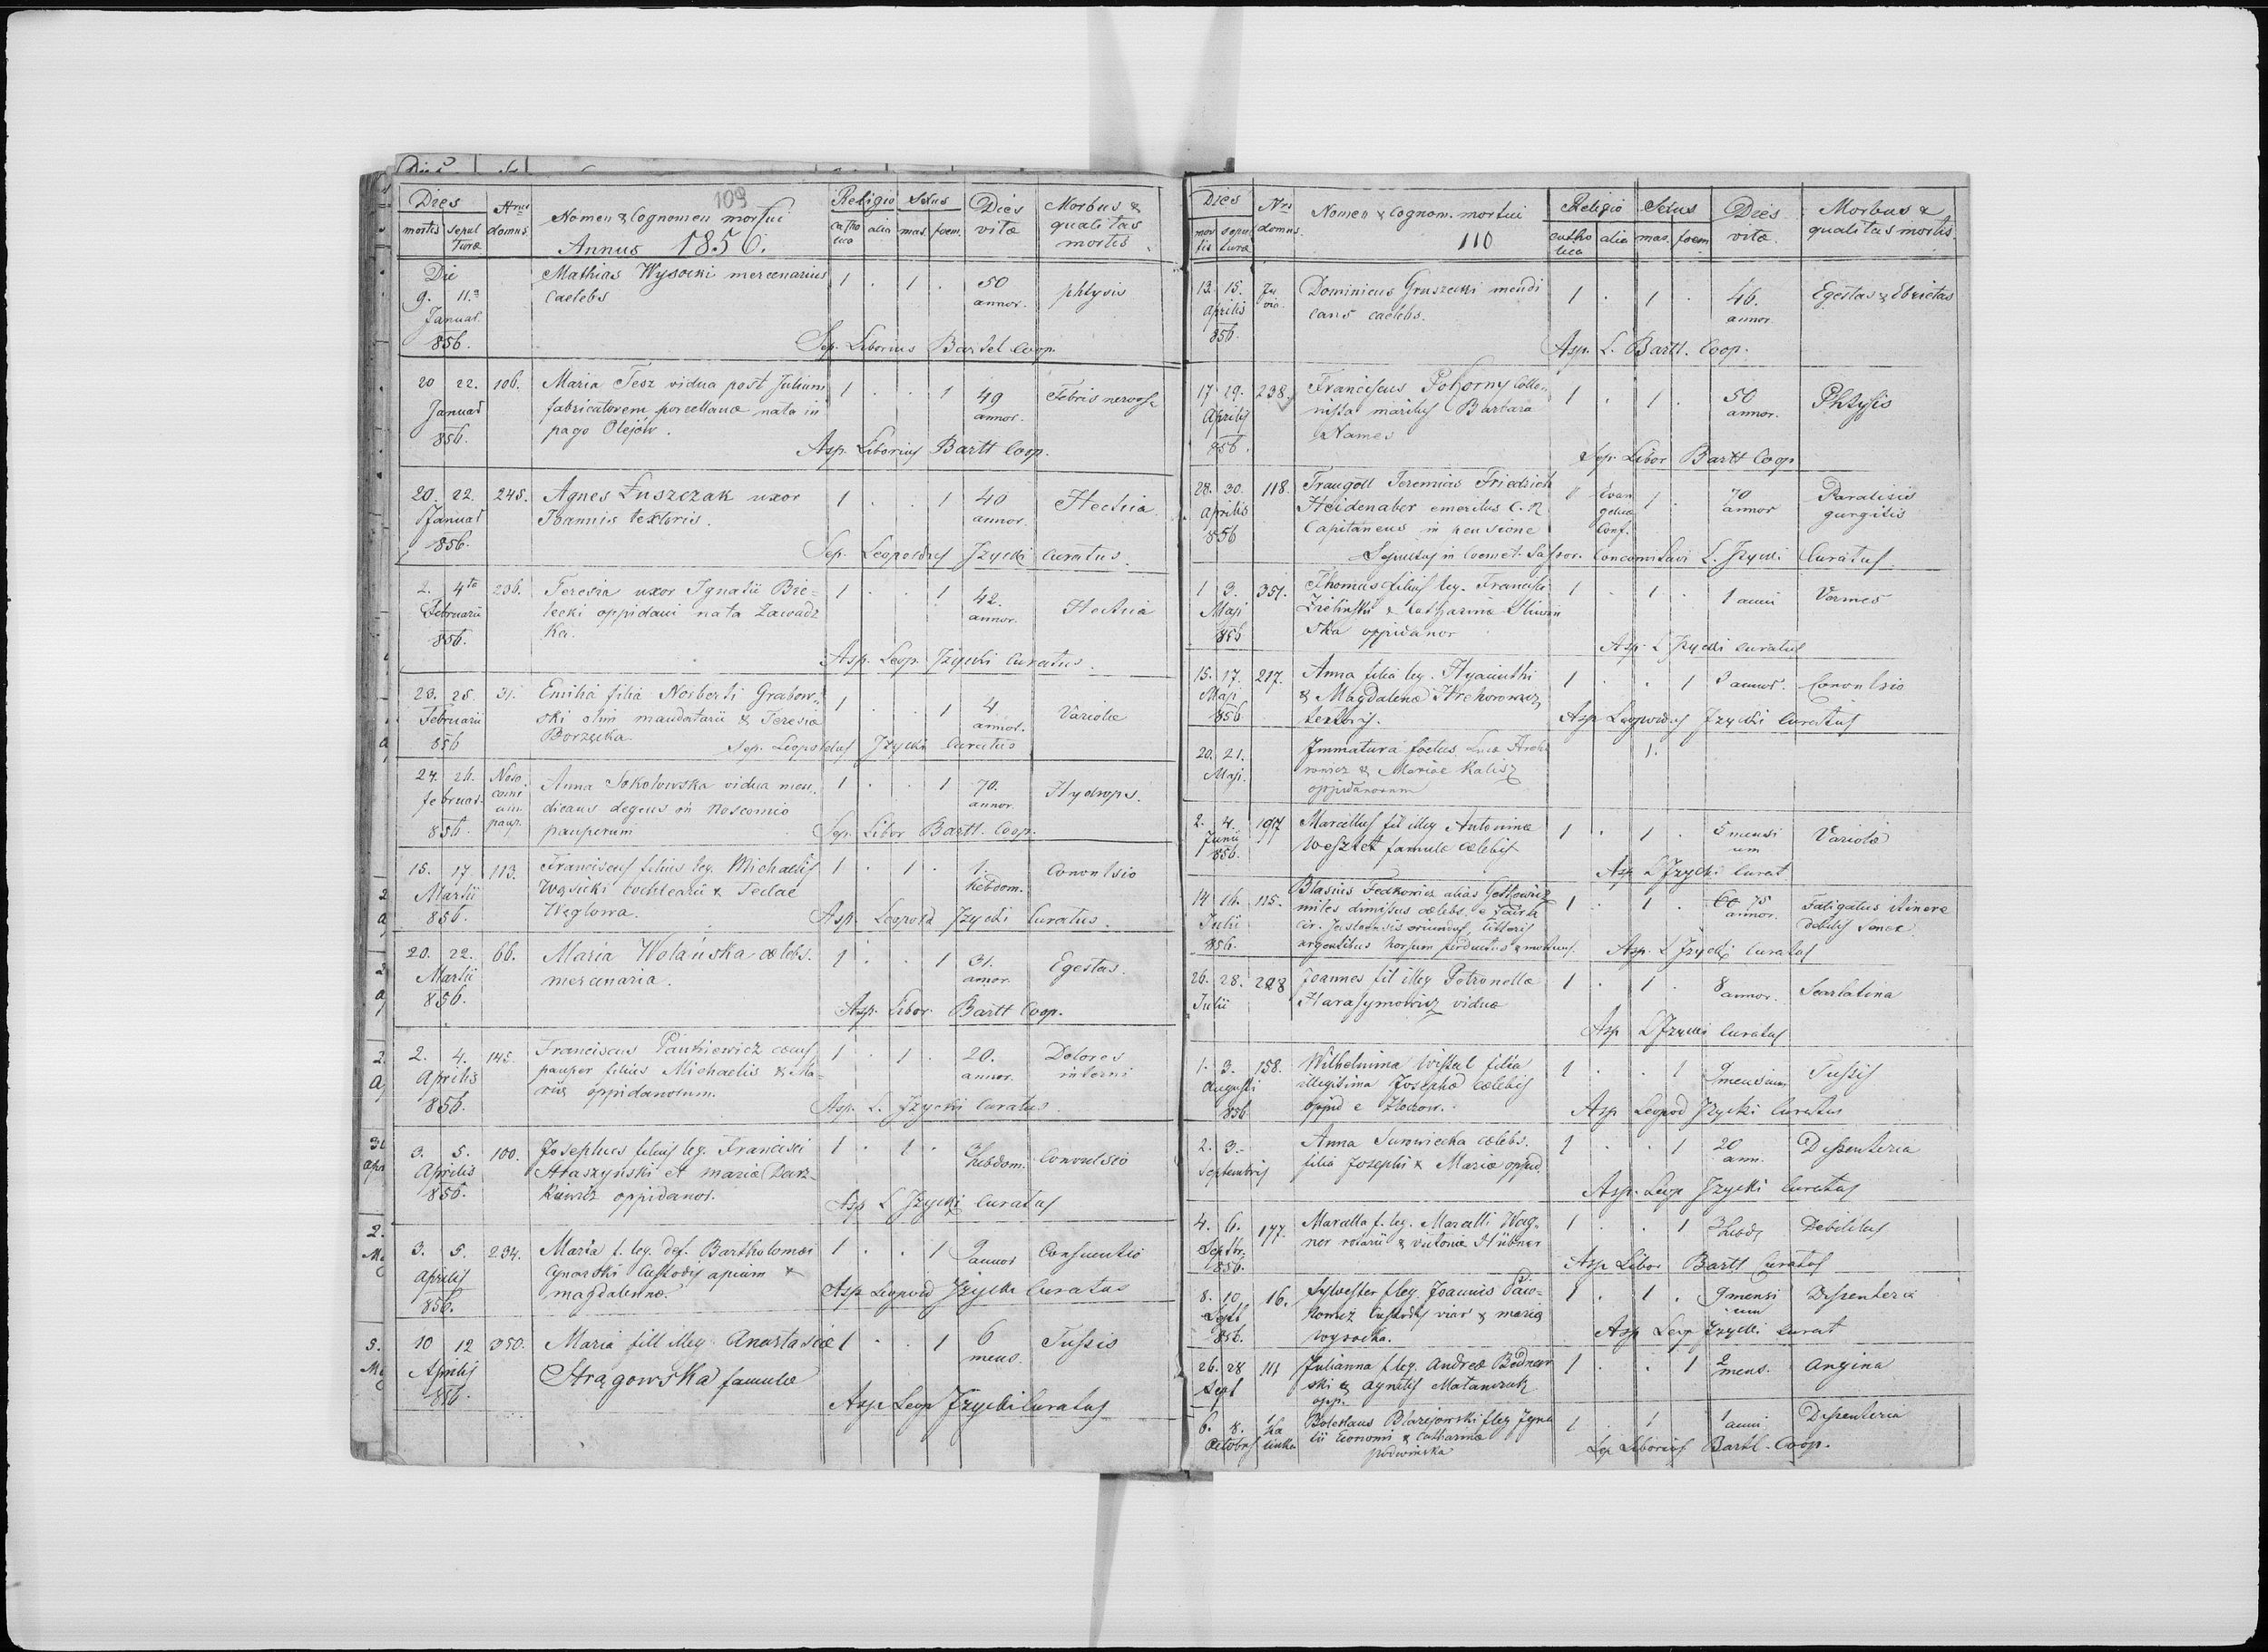 Dies
Nrus
109
Religio
Sexus
Dies
Morbus &
mortis
sepul
turæ
domus
Nomen & Cognomen mortui
catho
lica
alia
mas.
foem.
vitæ
qualitas
mortis
Annus 1856.
Die
Mathias Wysocki mercenarius
1 . 1 .
50
phtysis
9. 11.
caelebs
annor.
Januar.
856.
Sep. Liborius Bartel Coop.
20 22. 106.
Maria Tesz vidua post Julium
1 . . 1
49
Febris nervosa
Januar
fabricatorem porcellanæ nata in
annor.
856.
pago Olejów.
Asp. Liborius Bartl Coop.
20. 22. 245.
Agnes Łuszczak uxor
1 . . 1
40
Hectica
Januar
Joannis textoris.
annor.
856.
Sep. Leopoldus Jzycki Curatus.
2. 4ta 236.
Teresia uxor Ignatii Bie-
1 . . 1
42.
Hectica
Februarii
lecki oppidani nata Zawadz
annor.
856.
ka.
Asp. Leop. Jzycki Curatus.
23. 25. 31.
Emilia filia Norberti Grabow-
1 . . 1
4
Variolæ
Februarii
ski olim mandatarii & Teresia
annor.
856
Borzęcka.
Sep. Leopoldus Jzycki Curatus
24. 26.
Anna Sokolowska vidua men-
1 . . 1
70.
Hydrops.
februar.
dicans degens in noscomio
annor.
856.
pauperum
Sep. Libor Bartl. Coop.
15. 17. 113.
Franciscus filius leg. Michaelis
1 . 1 .
1.
Convulsio
Martii
Wąsicki cochlearii & Teclae
hebdom.
856.
Węglowa.
Asp. Leopold Jzycki Curatus.
20. 22. 66.
Maria Wolańska cælebs.
1 . . 1
31.
Egestas.
Martii
mercenaria.
annor.
856.
Asp. Libor. Bartl Coop.
2. 4. 145.
Franciscus Pankiewicz cæcus
1 . 1 .
20.
Dolores
Aprilis
pauper filius Michaelis & Ma-
annor.
interni
856.
riæ oppidanorum.
Asp. L. Jzycki Curatus.
3. 5. 100.
Josephus filius leg. Francisci
1 . 1 .
3
Convulsio
Aprilis
Staszyński et Maria
hebdom.
856.
oppidanor.
Asp L Jzycki Curatus
3. 5. 234.
Maria f. leg. def. Bartholomæi
1 . . 1
9
Consumtio
Aprilis
Custodis apium &
annor
856.
Magdalennæ.
Asp Leopold Jzycki Curatus
10 12 350.
Maria fill illeg. Anastasiæ
1 . . 1
6
Tussis
Aprilis
Strągowska famulæ
mens.
856.
Asp Leop Jzycki Curatus
Dies
Nrs
Nomen & Cognom. mortui
Religio
Sexus
Dies
Morbus &
mor
tis
sepul
turæ
domus.
110
catho
lica
alia
mas.
foem
vitæ.
qualitas mortis.
13. 15.
In
via.
Dominicus Gruszecki mendi
1 . 1 .
46.
Egestas & Ebrietas
Aprilis
cans caelebs.
annor.
856.
Asp. L. Bartl. Coop.
17. 19. 238.
Franciscus Pokorny Colo-
1 . 1 .
50
Phtysis
Aprilis
nista maritus Barbara
annor.
856.
Names
Sep. Libor Bartl Coop
28. 30. 118.
Traugott Jeremias Friedrich
Evan
1 .
70
Paralisis
Aprilis
Heidenaber emeritus C. R.
gelicæ
annor
gurgitis
856
Capitaneus in pensione
Conf.
Sepultus in Coemet. Sassov. Concomitavi L. Jzycki Curatus.
1 3. 351.
Thomas filius leg. Francisci
1 . 1 .
1 anni
Vermes
Maji
Zielinski & Catharinæ Sliwin
856
ska oppidanor
Asp. L Jzycki Curatus
15. 17. 217.
Anna filia leg. Hyacinthi
1 . . 1
annor.
Convulsio
Maji
& Magdalena Archorowicz
856.
textoris.
Asp Leopoldus Jzycki Curatus
20. 21.
Immatura foetus Lucæ
1.
Maji.
& Mariae Kalisz
oppidanorum
2. 4. 197
Marcellus fil illeg Antoninæ
1 . 1 .
5 mensi
Variolæ
Junii
famulæ cælebis
um
856.
Asp L Jzycki Curat
14 16. 115.
Blasius Fedkowicz alias Getkowicz
1 . 1 .
60 75
Fatigatus itinere
Julii
miles dimissus cælebs. e
annor.
debilis senex.
856.
cir. Jasloensis oriundus, litteris
urgentibus horsum perductus & mortuus.
Asp. L Jzycki Curatus
26. 28. 228
Joannes fil illeg Petronellæ
1 . 1 .
8
Scarlatina
Julii
Harasymowicz viduæ
annor.
Asp L Jzycki Curatus
1. 3. 158.
Wilhelmina filia
1 . . 1
9
Tussis
Augusti
illegitima Josephæ cælebis
mensium
856.
oppid e Złoczow.
Asp Leopold Jzycki Curatus
2. 3.
Anna Surowiecka cælebs.
1 . . 1
20
Dyssenteria
Septembris
filia Josephi & Mariæ oppid
ann.
Asp. Leop Jzycki Curatus
4. 6. 177.
Marcella f. leg. Marcelli Wag-
1 . . 1
3
Debilitas
Septbr.
ner rotarii & Victoria Hübner
hebd
856.
Asp Libor Bartl Curatus
8. 10. 16.
Sylvester f leg. Joannis
1 . 1 .
9 mensi
Dyssenteria
Sept
Custodis viar & Maria
um
856.
Wysocka.
Asp Leop Jzycki Curat
26. 28 111
Julianna f leg. Andreæ Bednar
1 . . 1
2
Angina
Sept
ski & Agnetis Matanczuk
mens.
opp.
6. 8.
Boleslaus Błażejowski f leg Igna
1 . 1
1 anni
Dyssenteria
Octobris
tii Economi & Catharinæ
Podwinska
Sep Liborius Bartl. Coop.